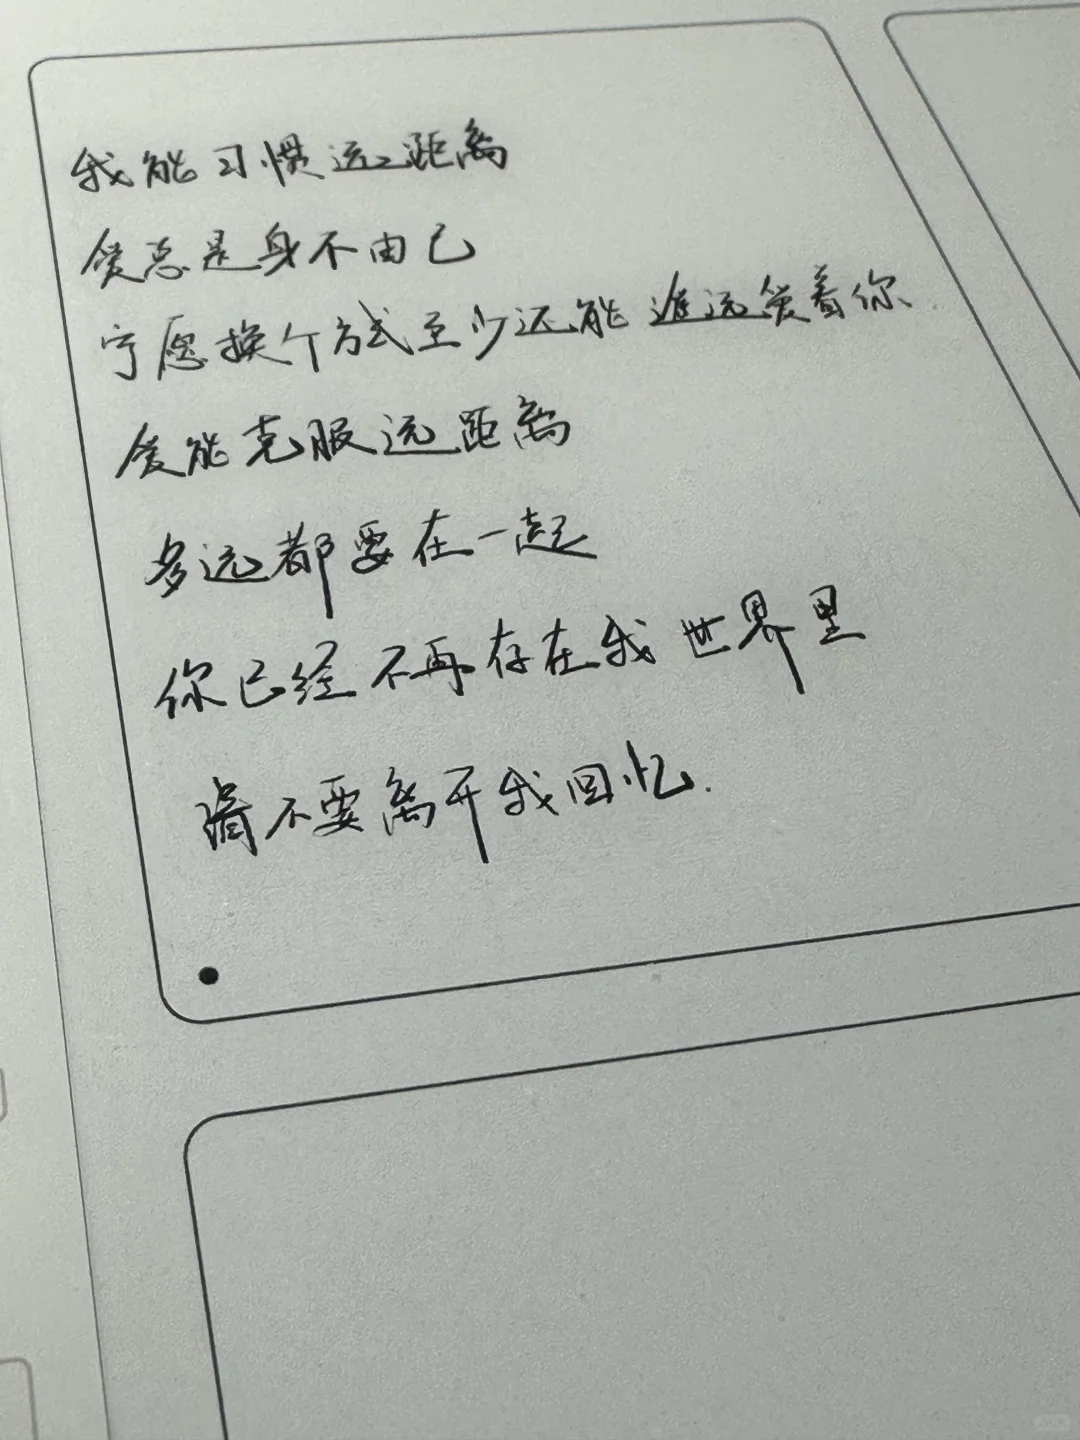 我能习惯远距离
爱总是身不由己
宁愿换个方式至少还能遥远爱着你
爱能克服远距离
多远都要在一起
你已经不再存在我世界里
请不要离开我回忆.